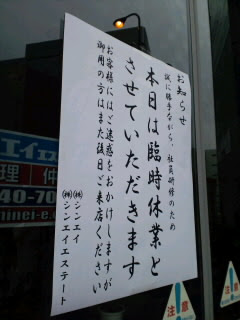 お知らせ
誠に勝手ながら、社員研修のため
本日は臨時休業と
させていただきます
お客様にはご迷惑をおかけしますが
御用の方はまた後日ご来店ください
㈱シンエイ
㈱シンエイエステート
エイエ
理 仲
40-70
hinei-e.
注意
注意